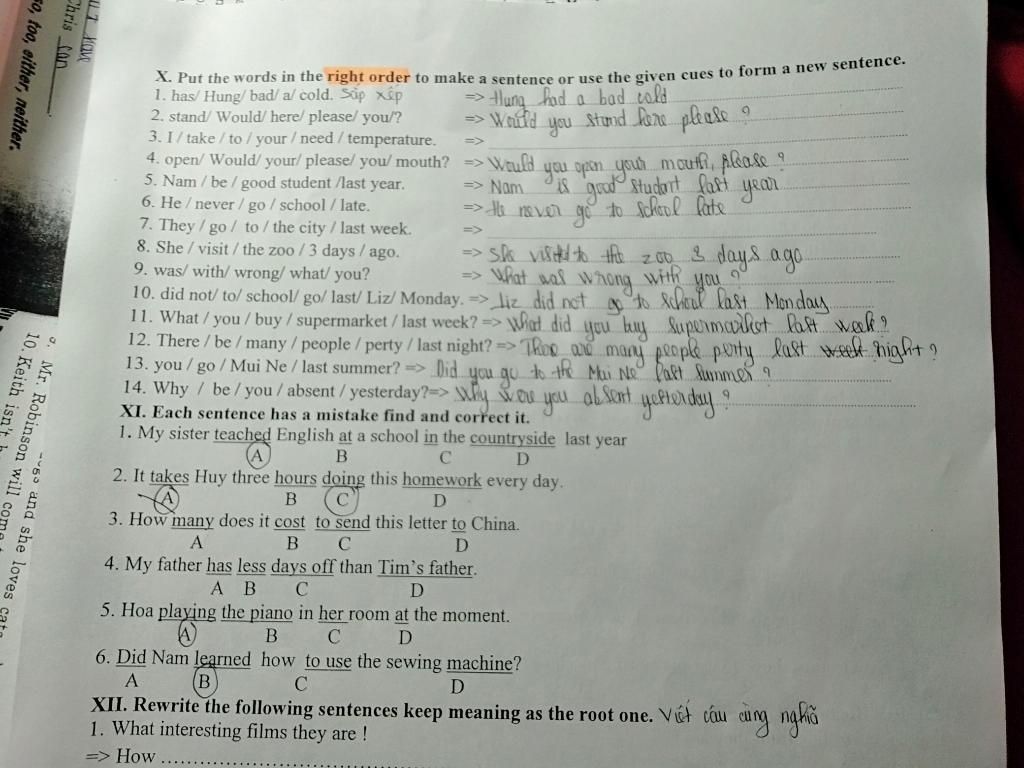 u I have
Chris can
so, too, either, neither.
X. Put the words in the right order to make a sentence or use the given cues to form a new sentence.
1. has/ Hung/ bad/ a/ cold. Sắp xếp => Hung had a bad cold
2. stand/ Would/ here/ please/ you/? => Would you stand here please ?
3. I / take / to / your / need / temperature. =>
4. open/ Would/ your/ please/ you/ mouth? => Would you open your mouth, please ?
5. Nam / be / good student /last year. => Nam is good student last year
6. He / never / go / school / late. => He never go to school late
7. They / go / to / the city / last week. =>
8. She / visit / the zoo / 3 days / ago. => She visited to the zoo 3 days ago
9. was/ with/ wrong/ what/ you? => What was wrong with you ?
10. did not/ to/ school/ go/ last/ Liz/ Monday. => Liz did not go to school last Monday
11. What / you / buy / supermarket / last week? => What did you buy supermarket last week ?
12. There / be / many / people / perty / last night? => There are many people perty last week night ?
13. you / go / Mui Ne / last summer? => Did you go to the Mui Ne last summer ?
14. Why / be / you / absent / yesterday?=> Why were you absent yesterday ?
XI. Each sentence has a mistake find and correct it.
1. My sister teached English at a school in the countryside last year
A B C D
2. It takes Huy three hours doing this homework every day.
A B C D
3. How many does it cost to send this letter to China.
A B C D
4. My father has less days off than Tim's father.
A B C D
5. Hoa playing the piano in her room at the moment.
A B C D
6. Did Nam learned how to use the sewing machine?
A B C D
XII. Rewrite the following sentences keep meaning as the root one. Viết câu cùng nghĩa
1. What interesting films they are !
=> How ..............................
and she loves cats
9. Mr. Robinson
10. Keith isn't
Robinson will come